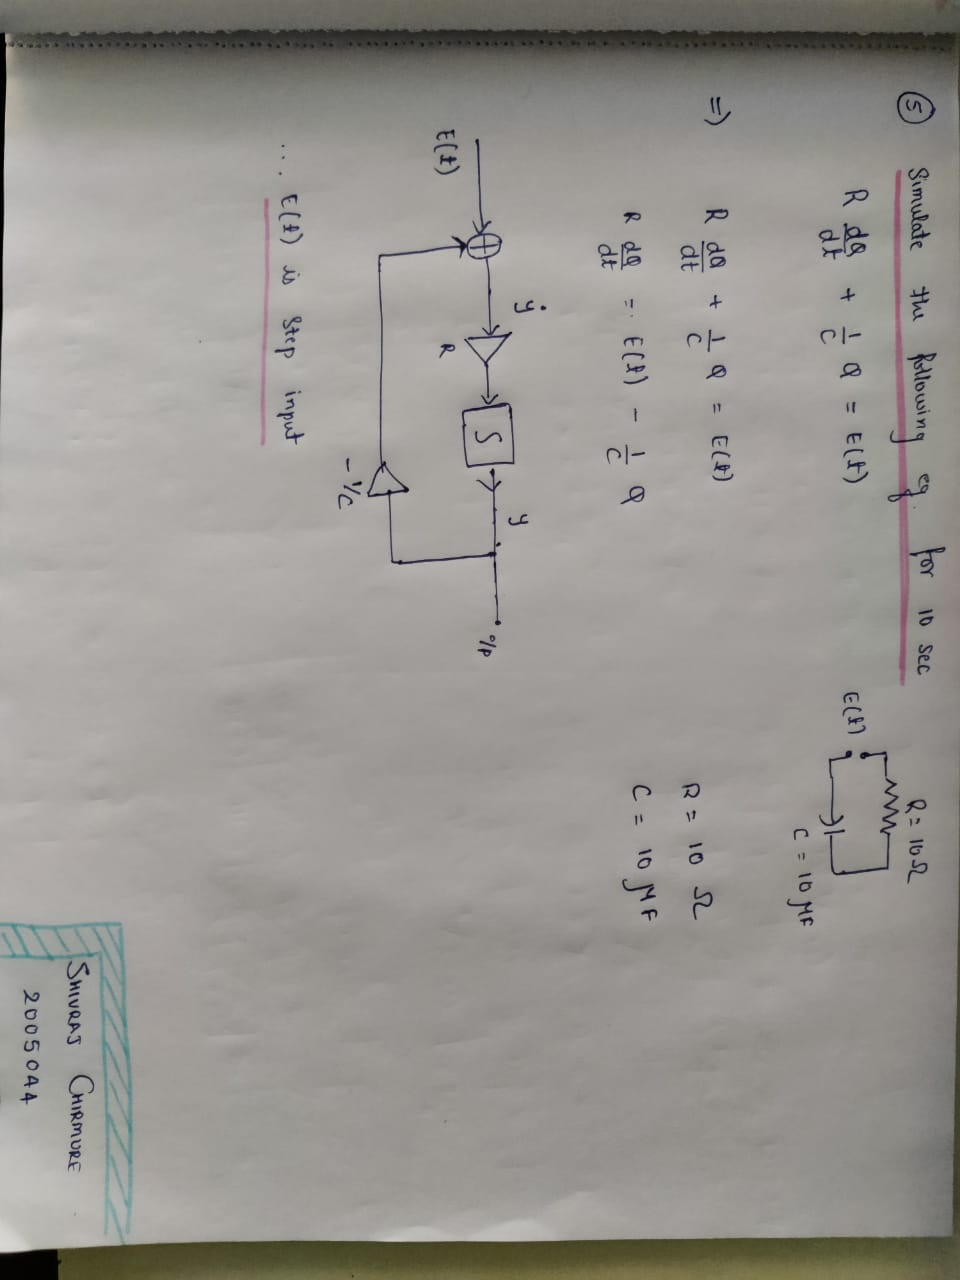 ⑤ Simulate the following eq. for 10 sec
R dQ/dt + 1/C Q = E(t)
R = 10 Ω
E(t)
C = 10 μF
⇒ R dQ/dt + 1/C Q = E(t)
R = 10 Ω
R dQ/dt = E(t) - 1/C Q
C = 10 μF
ẏ
y
E(t)
+
R
∫
o/p
-1/C
... E(t) is step input
SHIVRAJ CHIRMURE
2005044